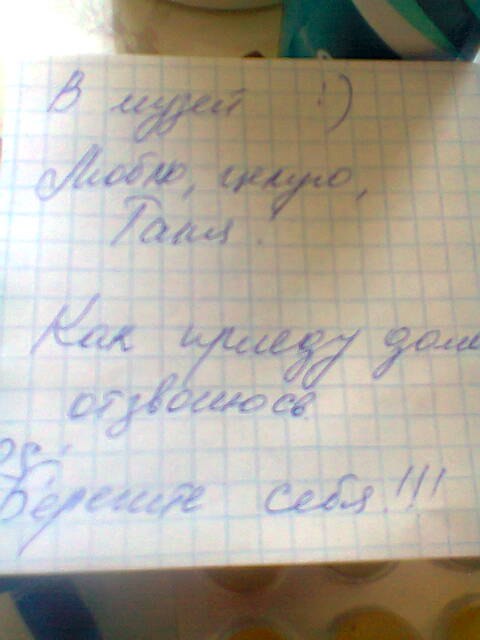 В музей :)
Люблю, целую,
Таня.
Как приеду дом
отзвонюсь.
Берегите себя!!!